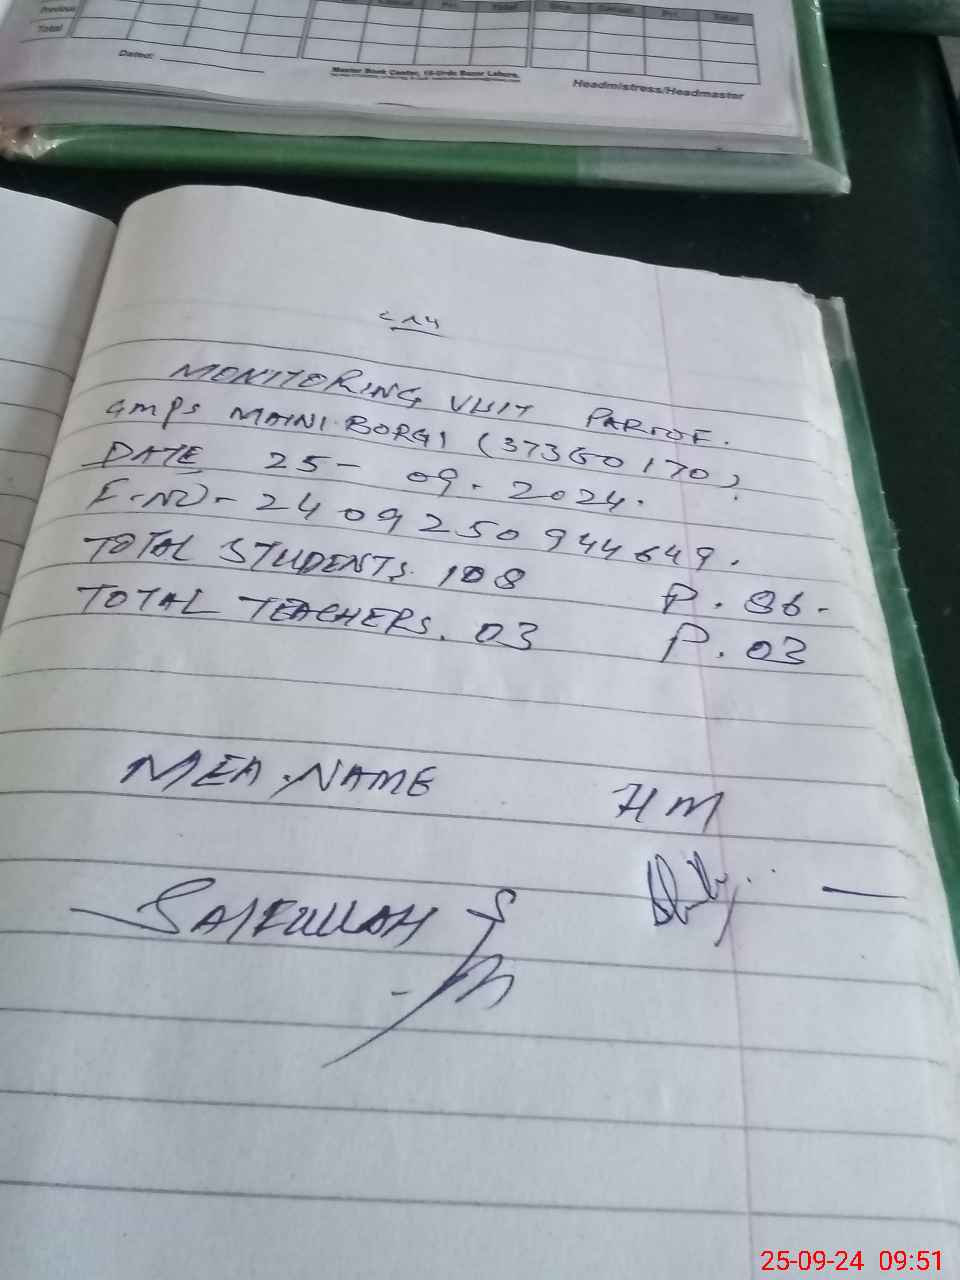 Previous
Total
Total
Total
Dated:
Master Book Center, 16-Urdu Bazar Lahore.
Headmistress/Headmaster
MONITORING VISIT PARFOF.
GMPS MAINI BORGI (37360170)
DATE 25-09.2024.
F.NO- 240925094 4649.
TOTAL STUDENTS. 108 P. 86-
TOTAL TEACHERS. 03 P. 03
MEA.NAME HM
SAIFULLAH
25-09-24 09:51